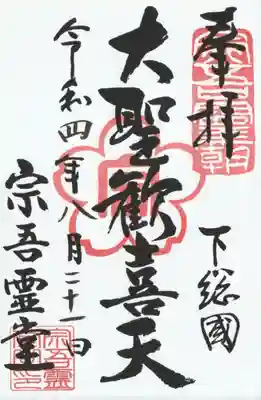 奉拝
下総國
大聖歓喜天
令和四年八月二十一日
宗吾霊堂